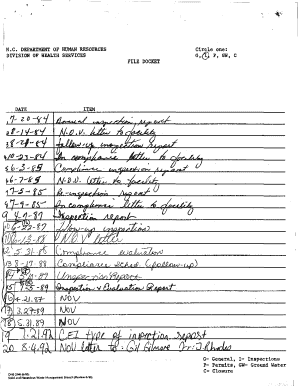 N.C. DEPARTMENT OF HUMAN RESOURCES
DIVISION OF HEALTH SERVICES
Circle one:
G, I, P, GW, C
FILE DOCKET
DATE ITEM
7-20-84 Annual inspection report
8-14-84 N.O.V. letter to facility
8-29-84 follow-up inspection report
10-23-84 In compliance letter to facility
6-3-85 Compliance inspection report
6-7-85 N.O.V. letter to facility
7-5-85 Re-inspection report
7-9-85 In compliance letter to facility
9 4-7-87 Inspection report
10 follow-up inspection
11 6-13-88 N.O.V. letter
12 5-31-88 Compliance evaluation
13 8-17-88 Compliance Sched (follow-up)
14
15 Inspection & Evaluation Report
16 4.21.87 NOV
17 3.27.89 NOV
18 5.31.89 NOV
19 7.21.92 CEI type of inspection report
20 8.4.92 NOV letter to: Gil Gilmore Rhodes
G- General, I- Inspections
P- Permits, GW- Ground Water
C- Closure